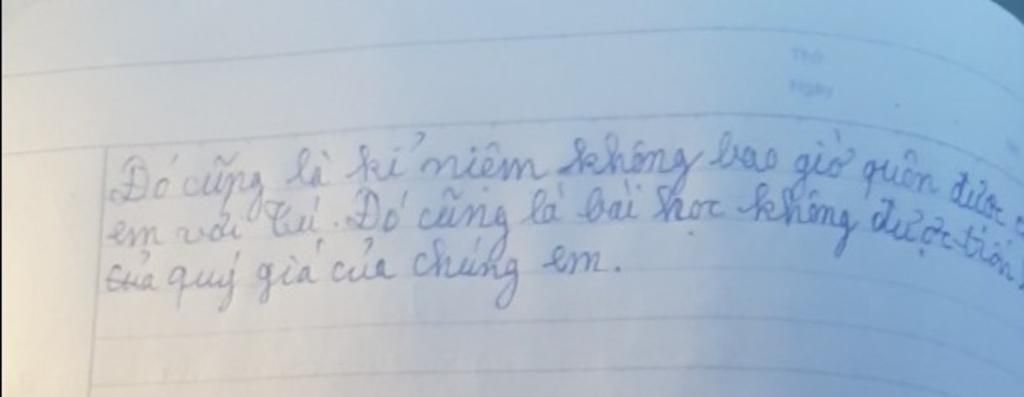 Thứ
Ngày
Đó cũng là kỉ niệm không bao giờ quên được
em với Tú. Đó cũng là bài học không được trốn
quý giá của chúng em.